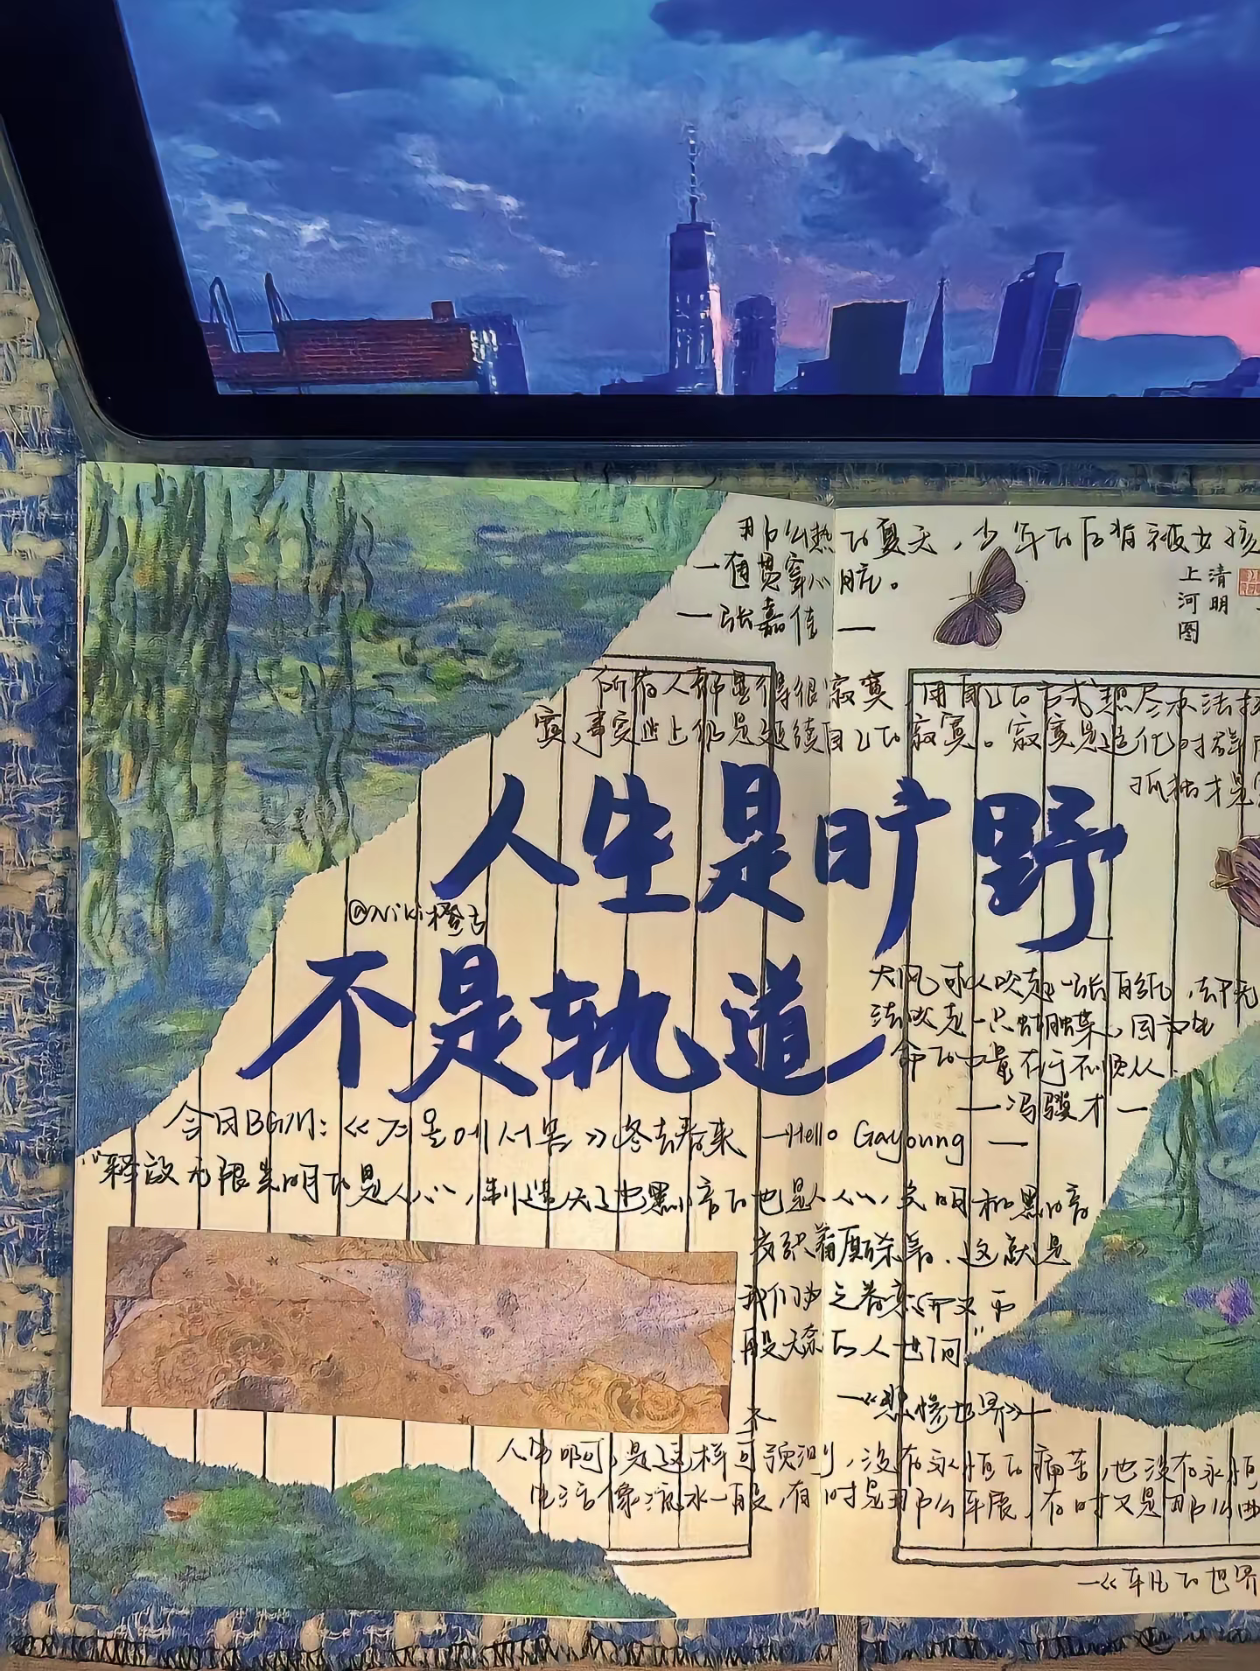 那么热的夏天，少年的后背被女孩
一通贯穿心脏。
—张嘉佳—
清明
上河图
所有人都显得很寂寞，用自己的方式想尽办法
寞，事实上仍是延续自己的寂寞。寂寞是造化对群
孤独才是
人生是旷野
@Niki橙
不是轨道
大风可以吹起一张白纸，却无
法吹走一只蝴蝶，因为生
命的力量在于不顺从
—冯骥才—
今日BGM：《겨울에서 봄》冬去春来 —Hello Gayoung—
"释放无限光明的是人心，制造无边黑暗的也是人心，光明和黑暗
交织着厮杀着，这就是
我们为之眷恋而又万
般无奈的人世间"
—《悲惨世界》—
人生啊，是这样不可预测，没有永恒的痛苦，也没有永恒
生活像流水一般，有时是那么平展，有时又是那么曲
—《平凡的世界